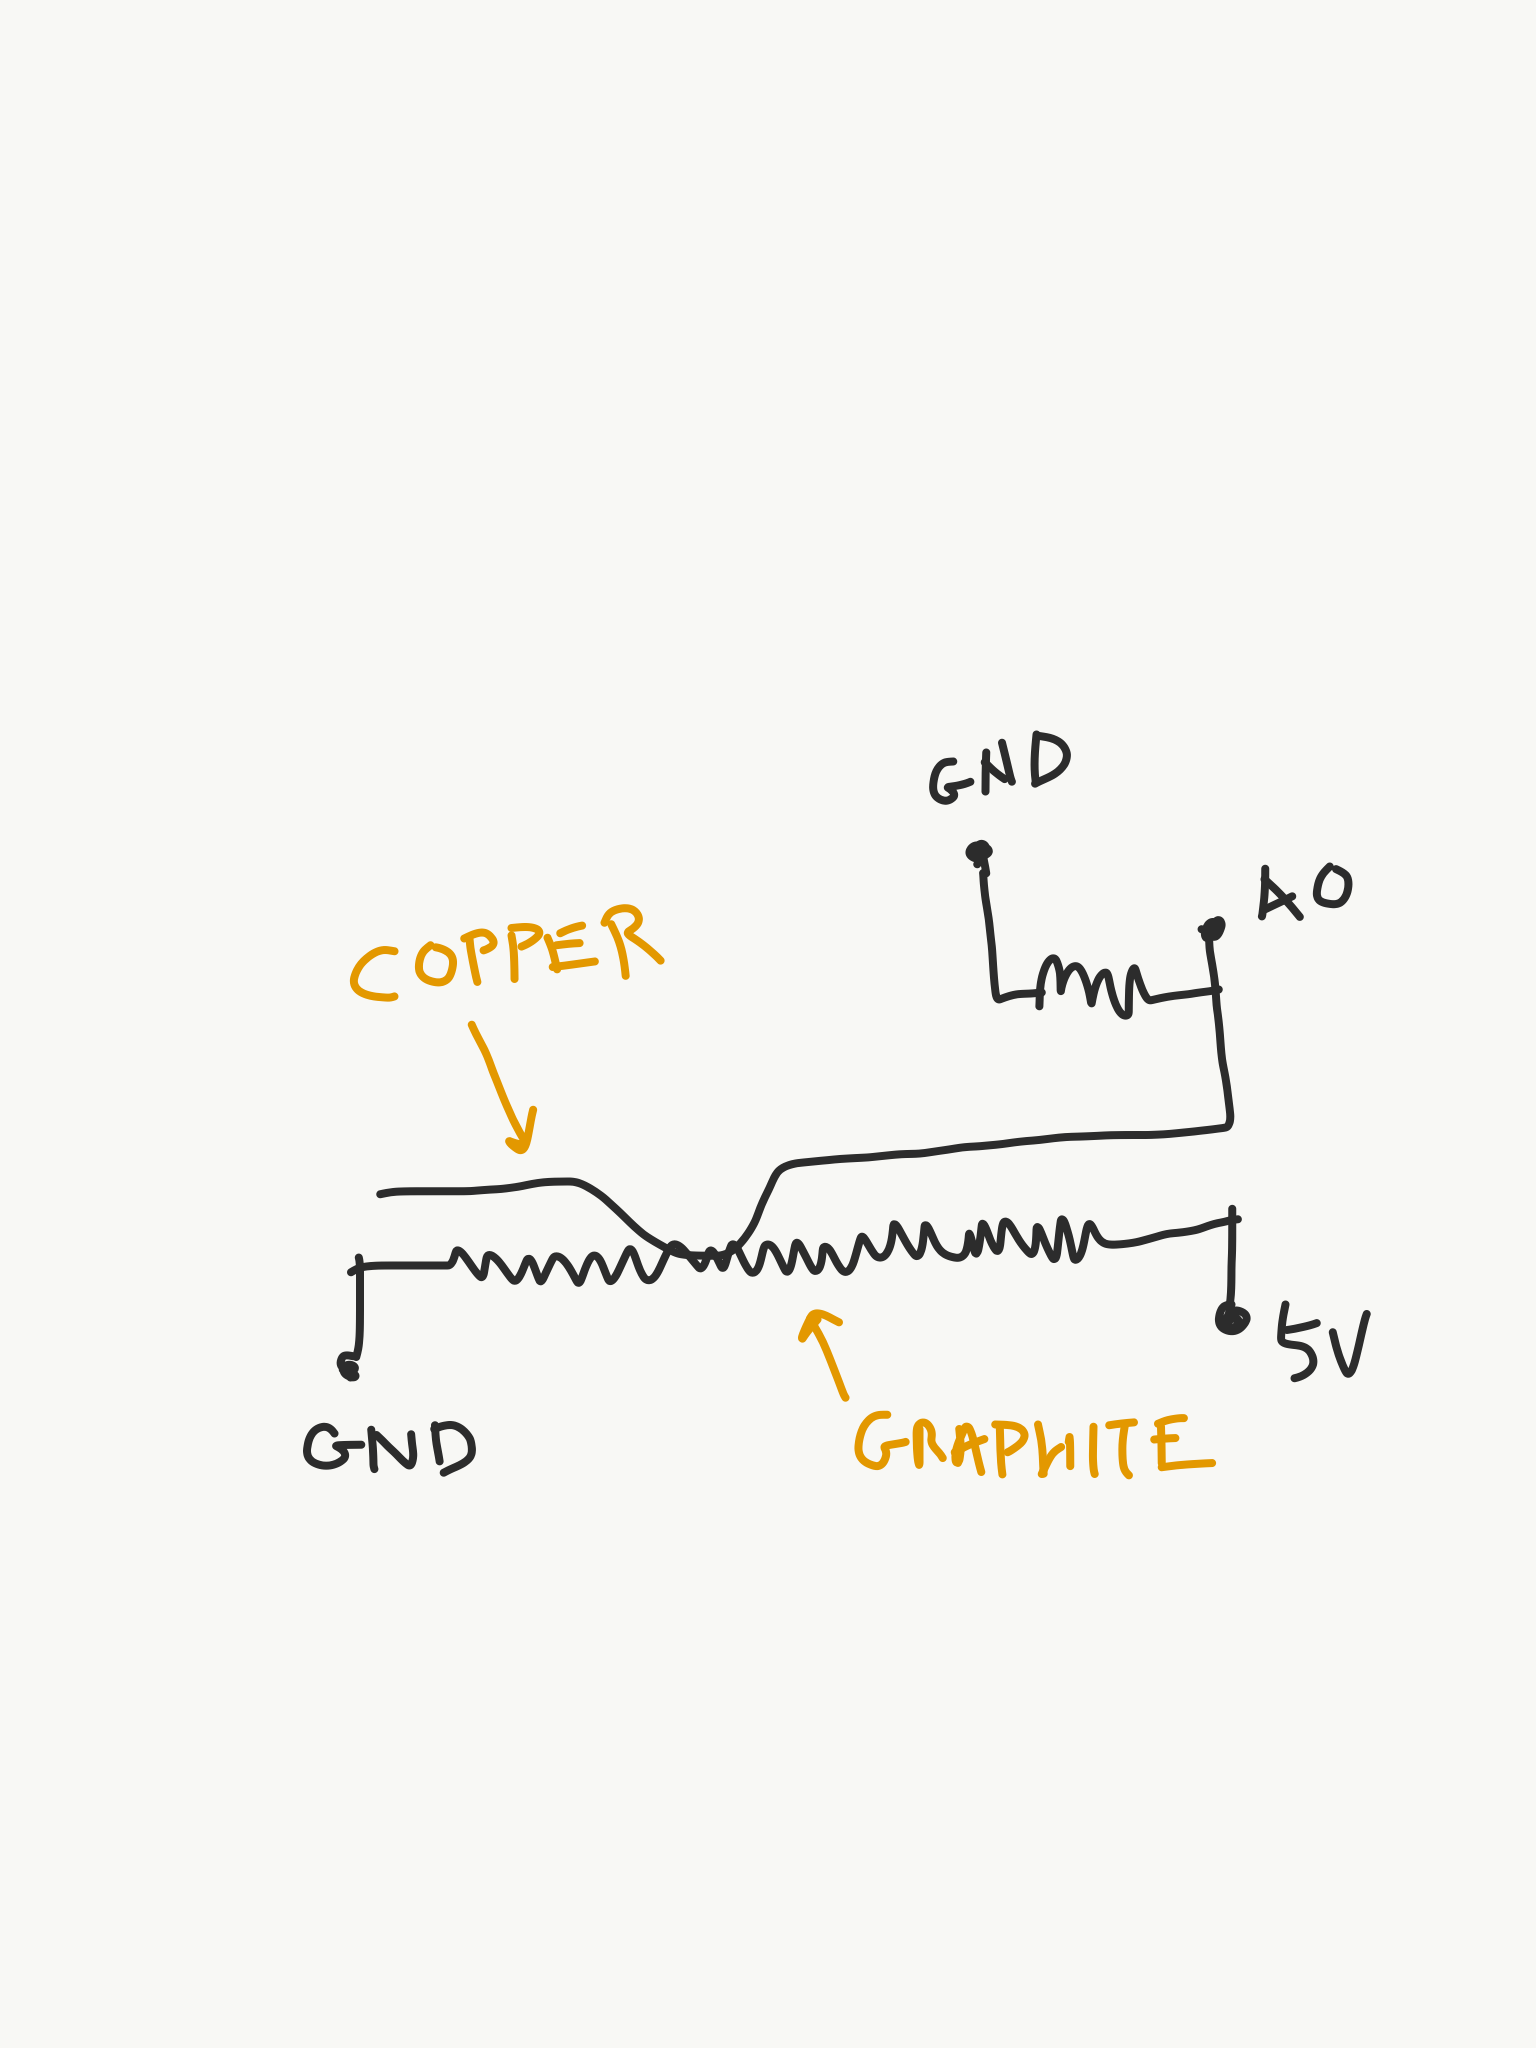 GND
A0
COPPER
5V
GND
GRAPHITE